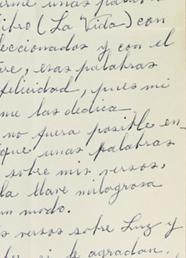 unas
libro (La Vida) con
leccionados y con el
re, esas palabras
felicidad, pues mi
me las dedica
no fuera posible en-
que unas palabras
sobre mis versos,
la llave milagrosa
un modo.
s versos sobre Luz y
si le agradan.